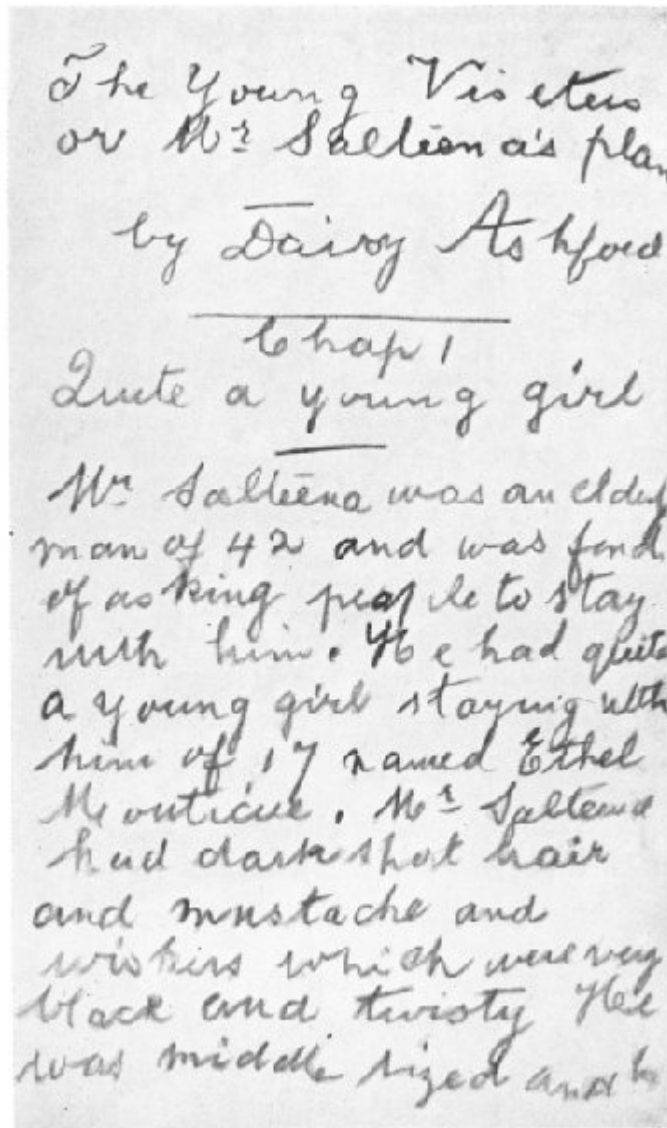 The Young Visiters
or Mr Salteena's plan
by Daisy Ashford
Chap 1
Quite a young girl
Mr Salteena was an eldery
man of 42 and was fond
of asking people to stay
with him. He had quite
a young girl staying with
him of 17 named Ethel
Monticue. Mr Salteena
had dark short hair
and mustache and
wiskers which were very
black and twisty He
was middle sized and h